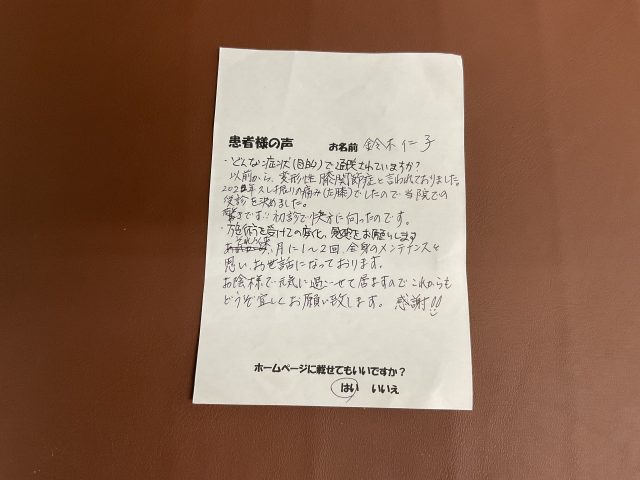 患者様の声 お名前 鈴木仁子
・どんな症状(目的)で通院されていますか?
以前から、変形性膝関節症と言われておりました。
久し振りの痛み(左膝)でしたので当院での
受診を決めました。
驚きです!!初診で快方に向ったのです。
・施術を受けての変化、感想をお願いします
月に1~2回、全身のメンテナンスを
思い、お世話になっております。
お陰様で元気に過ごせて居ますのでこれからも
どうぞ宜しくお願い致します。 感謝!!
ホームページに載せてもいいですか?
はい いいえ